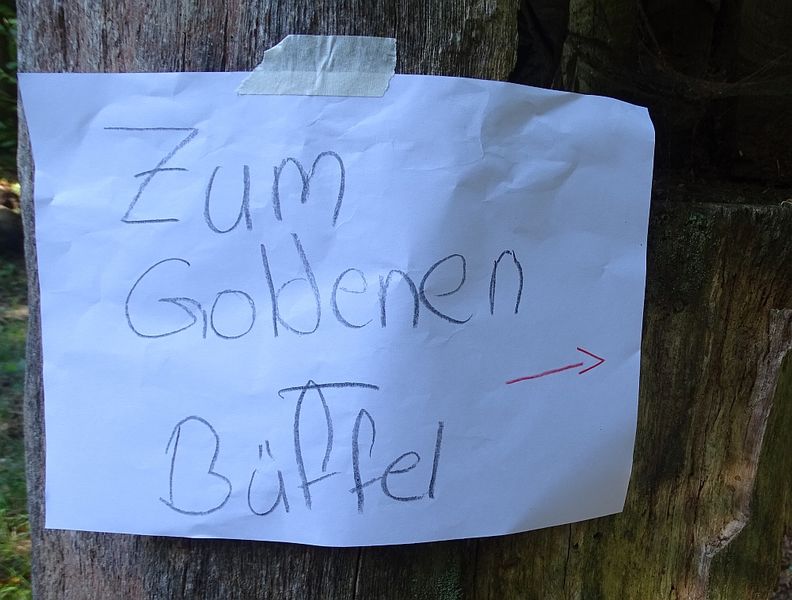 Zum
Goldenen
Büffel